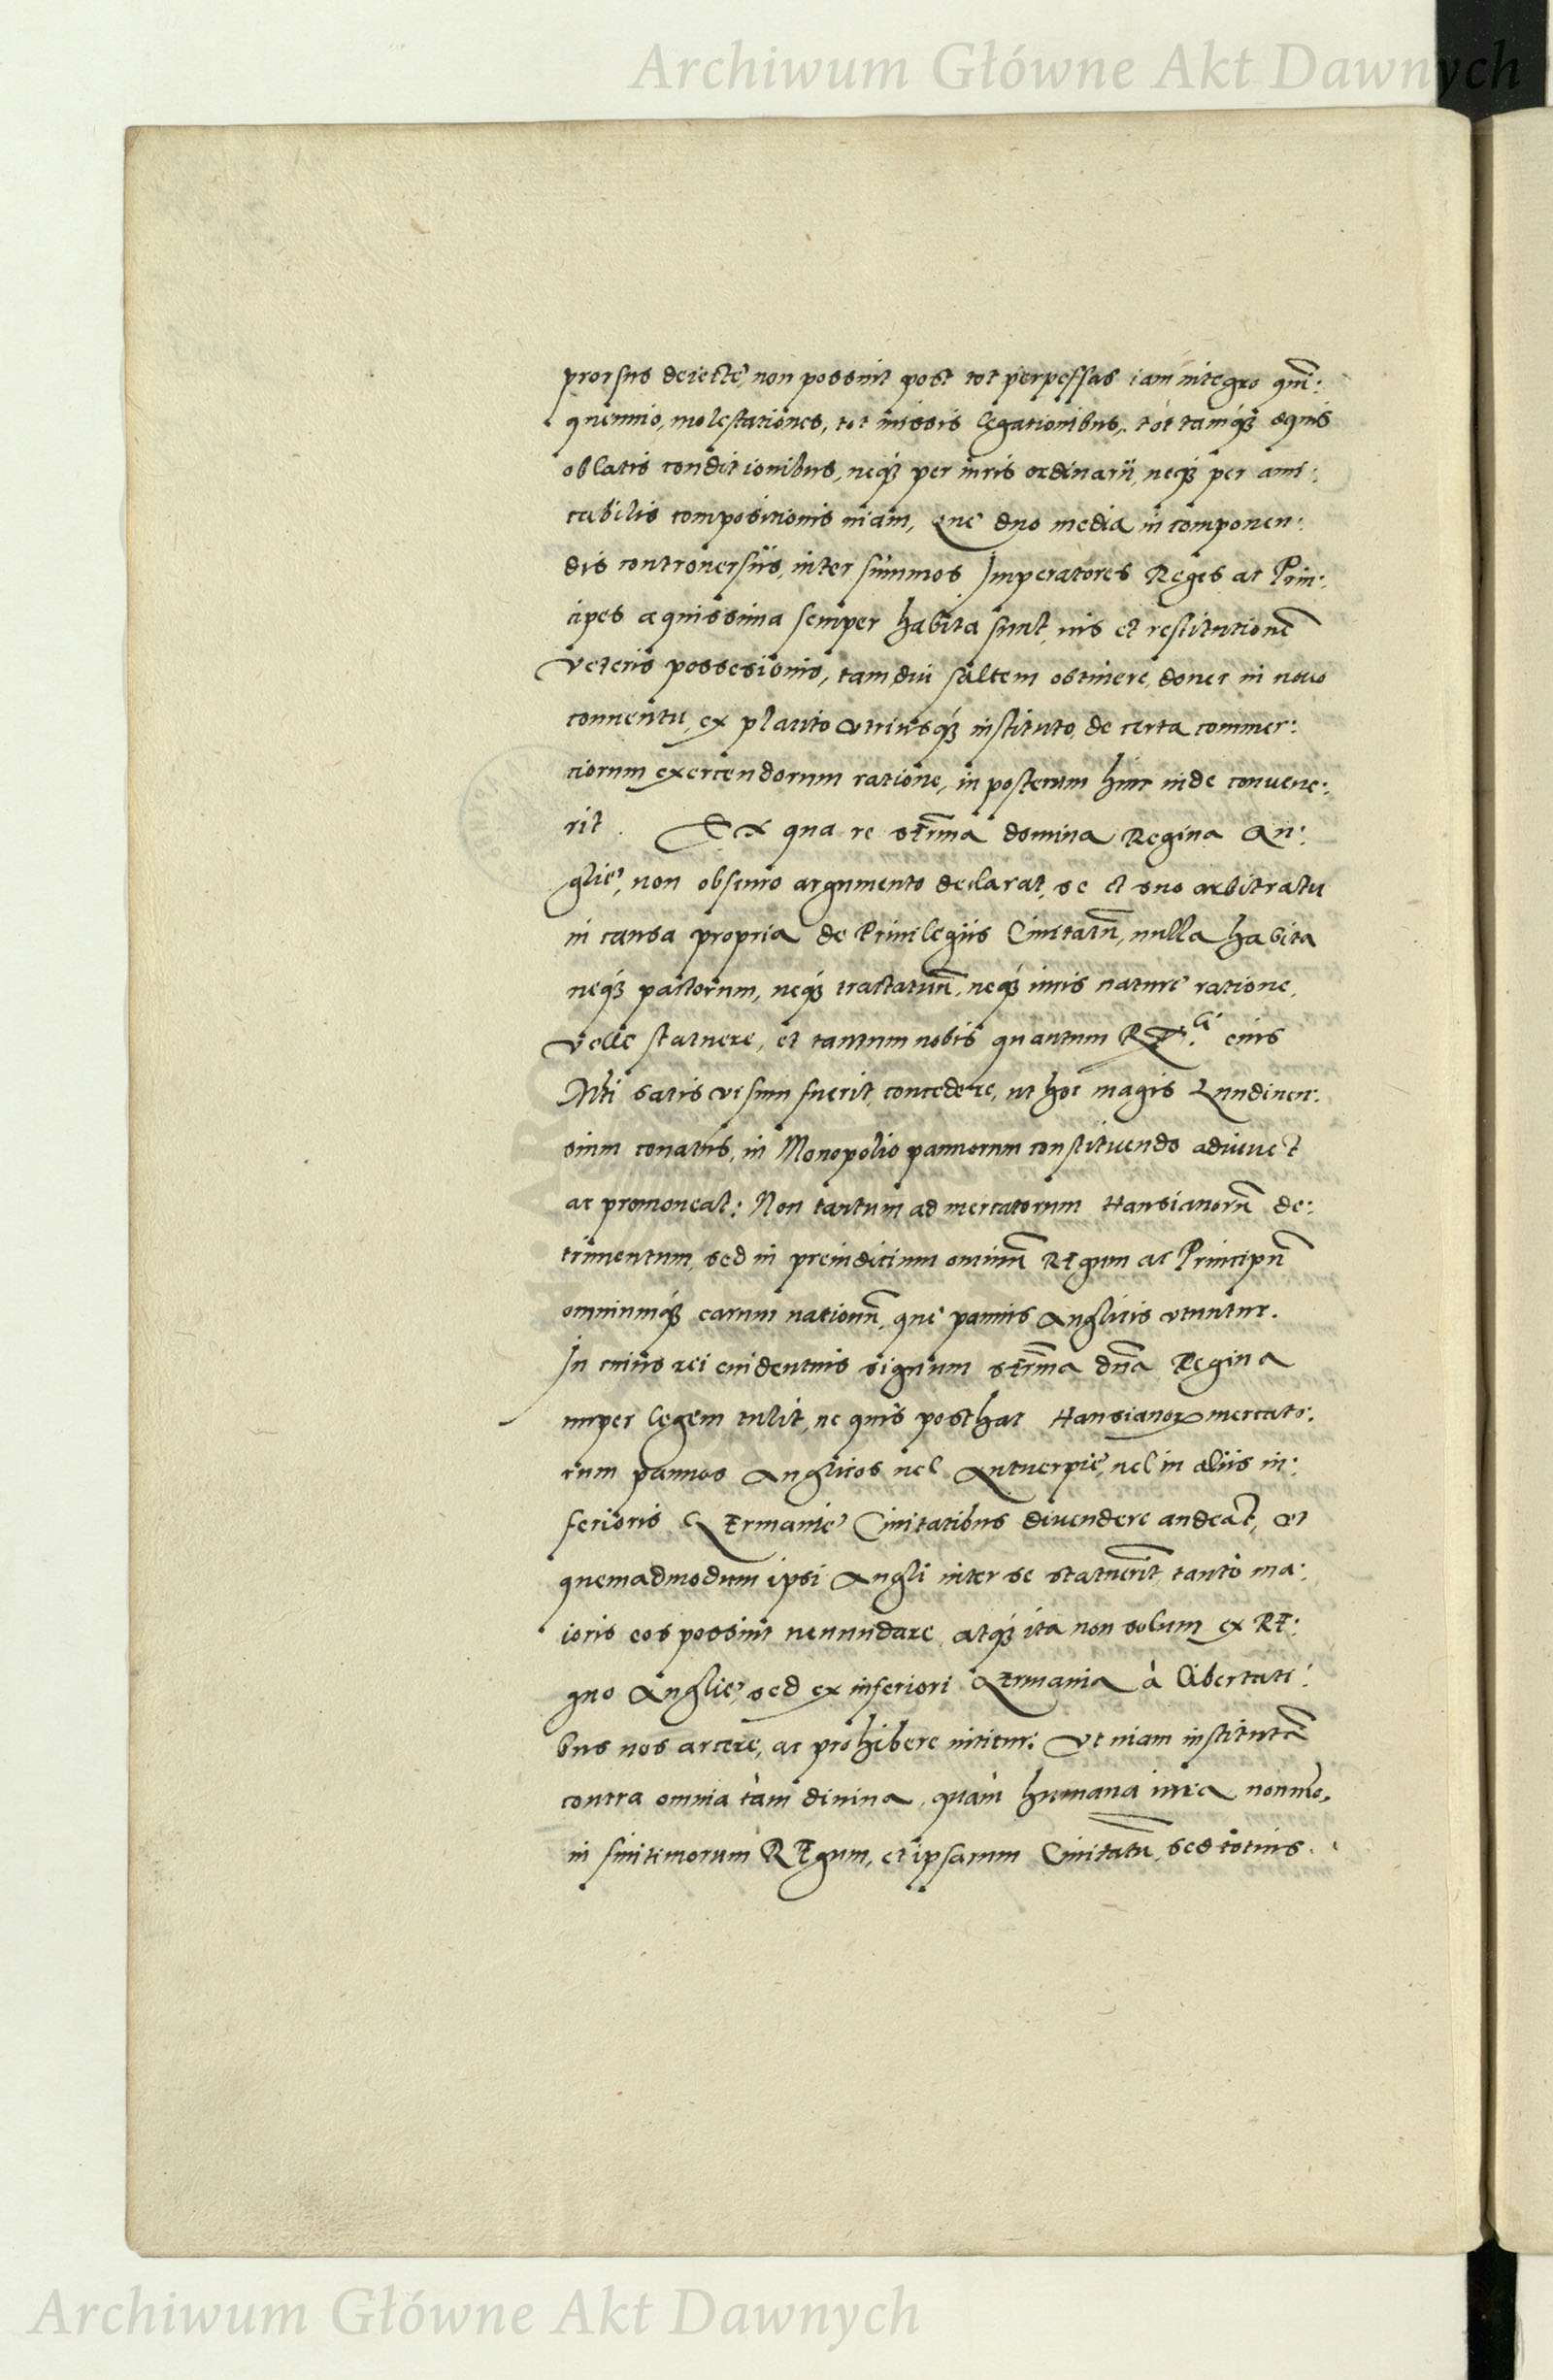 Archiwum Główne Akt Dawnych
prorsus deiectę, non possint post tot perpessas iam integro quin:
quennio, molestationes, tot missis legationibus, tot tamq́ꝫ æquis
oblatis conditionibus, neq́ꝫ per iuris ordinarii, neq́ꝫ per ami:
cabilis compositionis uiam, quę duo media in componen:
dis controuersiis, inter summos Imperatores Reges ac Prin:
cipes æquissima semper habita sunt, uis et restitutionē
veteris possesionis, tam diu saltem obtinere, donec in nouo
conuentu, ex placito vtriusq́ꝫ instituto, de certa commer:
ciorum exercendorum ratione, in posterum hinc inde convene:
rit. Ex qua re sermā domina Regina An:
glię, non obscuro argumento declarat, se et suo arbitratu
in causa propria de Priuilegiis Ciuitatū, nulla habita
neq́ꝫ pactorum, neq́ꝫ tractatuū, neq́ꝫ iuris naturę ratione,
velle statuere, et tantum nobis quantum eius
Mti satis visum fuerit, concedere, ut hoc magis Lundinen:
sium conatus, in Monopolio pannorum constituendo adiuuet
ac promoueat: Non tantum ad mercatorum Hansianorū de:
trimentum, sed in preiudicium omniū Regum ac Principū
omniumq́ꝫ earum nationū, quę pannis Anglicis vtuntur.
In cuius rei euidentius signum sermā dna Regina
nuper legem tulit, ne quis posthac Hansianoꝝ mercato:
rum pannos Anglicos uel Antuerpię, uel in aliis in:
ferioris Germanię Ciuitatibus diuendere audeat, et
quemadmodum ipsi Angli inter se statuerīt, tanto ma:
ioris eos possint uenundare, atq́ꝫ ita non solum ex Re:
gno Anglię, sed ex inferiori Germania à libertati:
bus nos arcere, ac prohibere nititur: Vt uiam institutā
contra omnia tàm diuina, quàm humana iura nonmō,
in finitimorum Regum, et ipsarum Ciuitatū, sed totius
Archiwum Główne Akt Dawnych